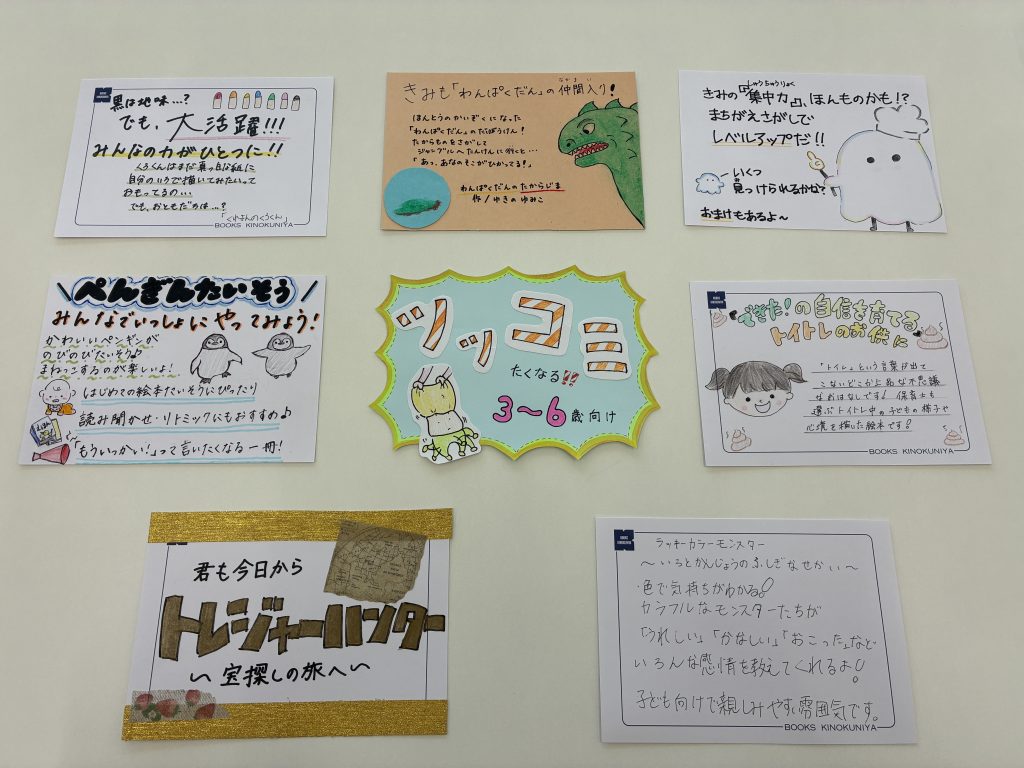 黒は地味…?
でも、大活躍!!!
みんなの力がひとつに!!
くろくんはまだ真っ白な紙に
自分のいろで描いてみたいって
おもってるの…
でも、おともだちは…?
「くれよんのくろくん」
BOOKS KINOKUNIYA
きみも「わんぱくだん」の仲間入り!
なかまい
ほんとうのかいぞくになった
「わんぱくだん」のだいぼうけん!
たからものをさがして
ジャングルへたんけんに行くと…
「あっ、あなのそこがひかってる!」
わんぱくだんのたからじま
作/ゆきのゆみこ
しゅうちゅうりょく
きみの『集中力』、ほんものかも!?
まちがえさがしで
レベルアップだ!!
いくつ
見つけられるかな?
おまけもあるよ〜
ぺんぎんたいそう
みんなでいっしょにやってみよう!
かわいいペンギンが
のびのびたいそう♪
まねっこするのが楽しいよ!
はじめての絵本たいそうにぴったり
読み聞かせ・リトミックにもおすすめ♪
「もういっかい!」って言いたくなる一冊!
ツッコミ
たくなる!!
3〜6歳向け
「できた!」の自信を育てる
トイトレのお供に
「トイレ」という言葉が出て
こないどこか上品な不思議
なおはなしです! 保育士も
選ぶトイトレ中の子どもの様子や
心境を描いた絵本です!
BOOKS KINOKUNIYA
君も今日から
トレジャーハンター
〜宝探しの旅へ〜
BOOKS
KINOKUNIYA
ラッキーカラーモンスター
〜いろとかんじょうのふしぎなせかい〜
・色で気持ちがわかる!
カラフルなモンスターたちが
「うれしい」「かなしい」「おこった」など
いろんな感情を教えてくれるよ!
子ども向けで親しみやすい雰囲気です。
BOOKS KINOKUNIYA